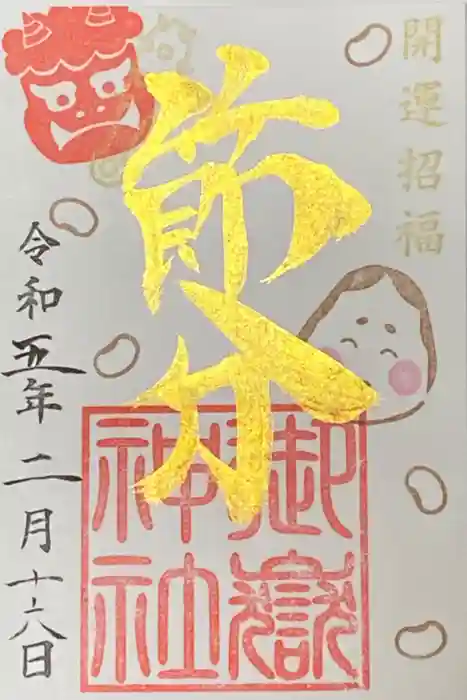 開運招福
節分
御嶽
神社
令和五年二月十六日